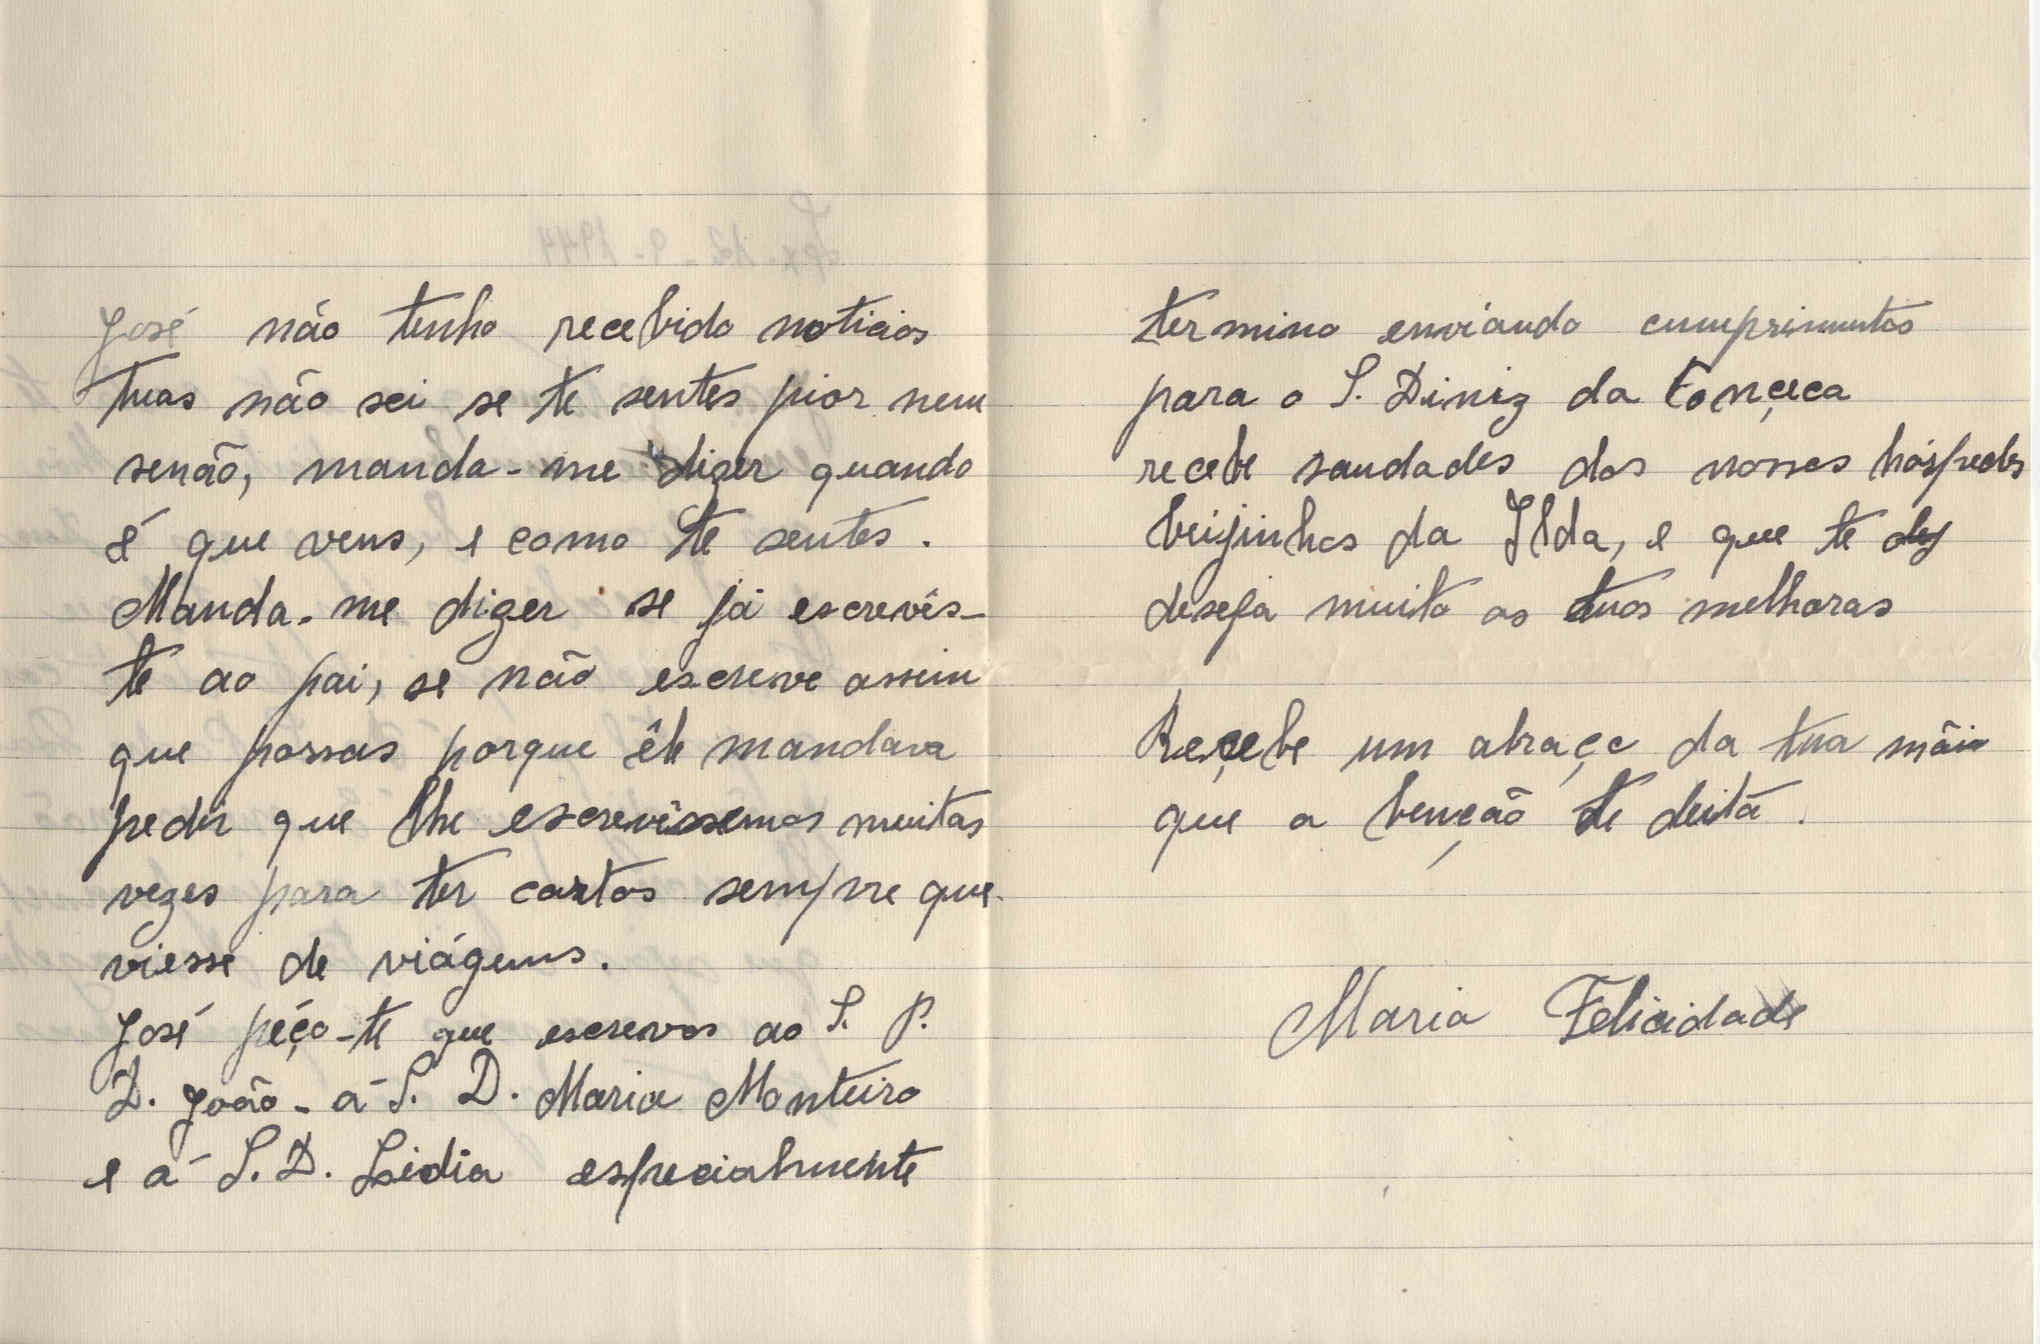 José não tenho recebido noticias
tuas não sei se te sentes pior nem
senão, manda-me dizer quando
é que vens, e como te sentes.
Manda-me dizer se já escrevis-
te ao pai, se não escreve assim
que possas porque êle mandava
pedir que lhe escrevissemos muitas
vezes para ter cartas sempre que
viesse de viágens.
José péço-te que escrevas ao S. P.
D. João - á S. D. Maria Monteiro
e á S. D. Lidia especialmente
termino enviando cumprimentos
para o S. Diniz da Fonçeca
recebe saudades dos nossos hóspedes
beijinhos da Ilda, e que te
deseja muito as tuas melhoras
Reçebe um abraço da tua mãie
que a benção te deita.
Maria Felicidade